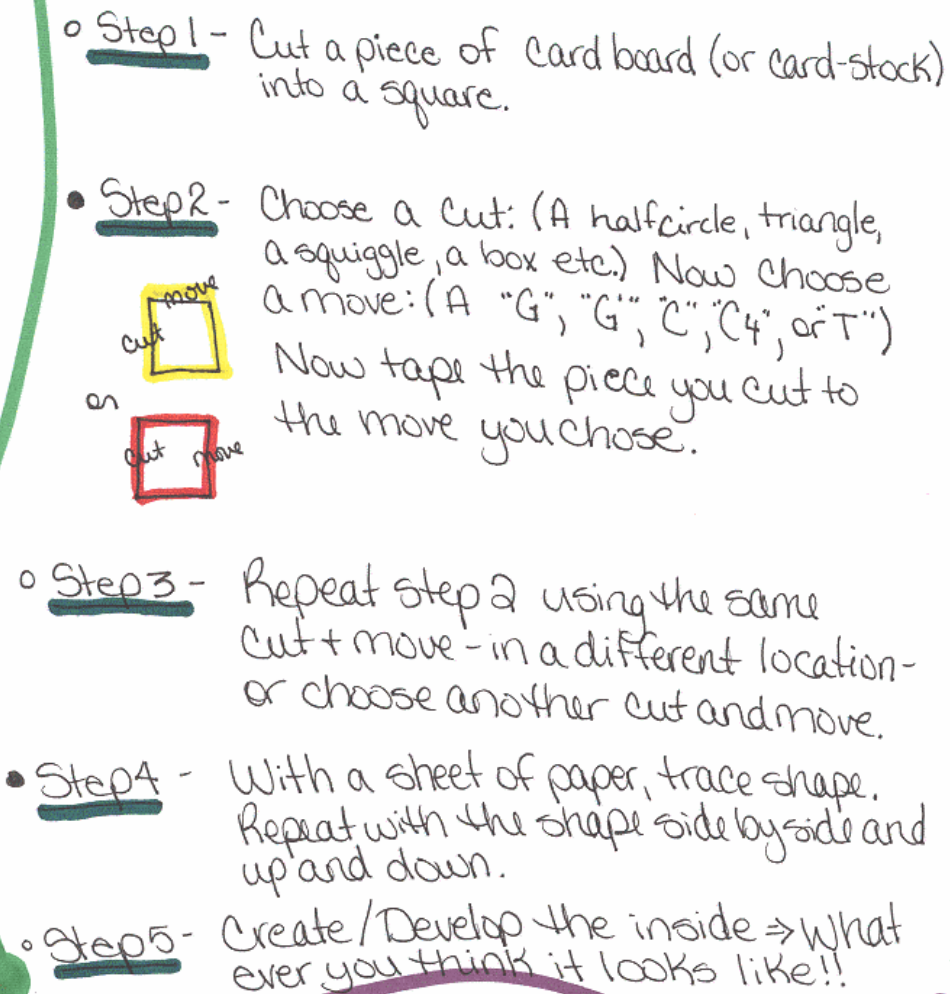 Step 1 - Cut a piece of cardboard (or card-stock)
into a square.
Step 2 - Choose a cut: (A halfcircle, triangle,
a squiggle, a box etc.) Now choose
a move: (A "G", "G'", "C", "C4", or "T")
Now tape the piece you cut to
the move you chose.
move
cut
or
cut move
Step 3 - Repeat step 2 using the same
cut + move - in a different location -
or choose another cut and move.
Step 4 - With a sheet of paper, trace shape.
Repeat with the shape side by side and
up and down.
Step 5 - Create/Develop the inside ⇒ What
ever you think it looks like!!